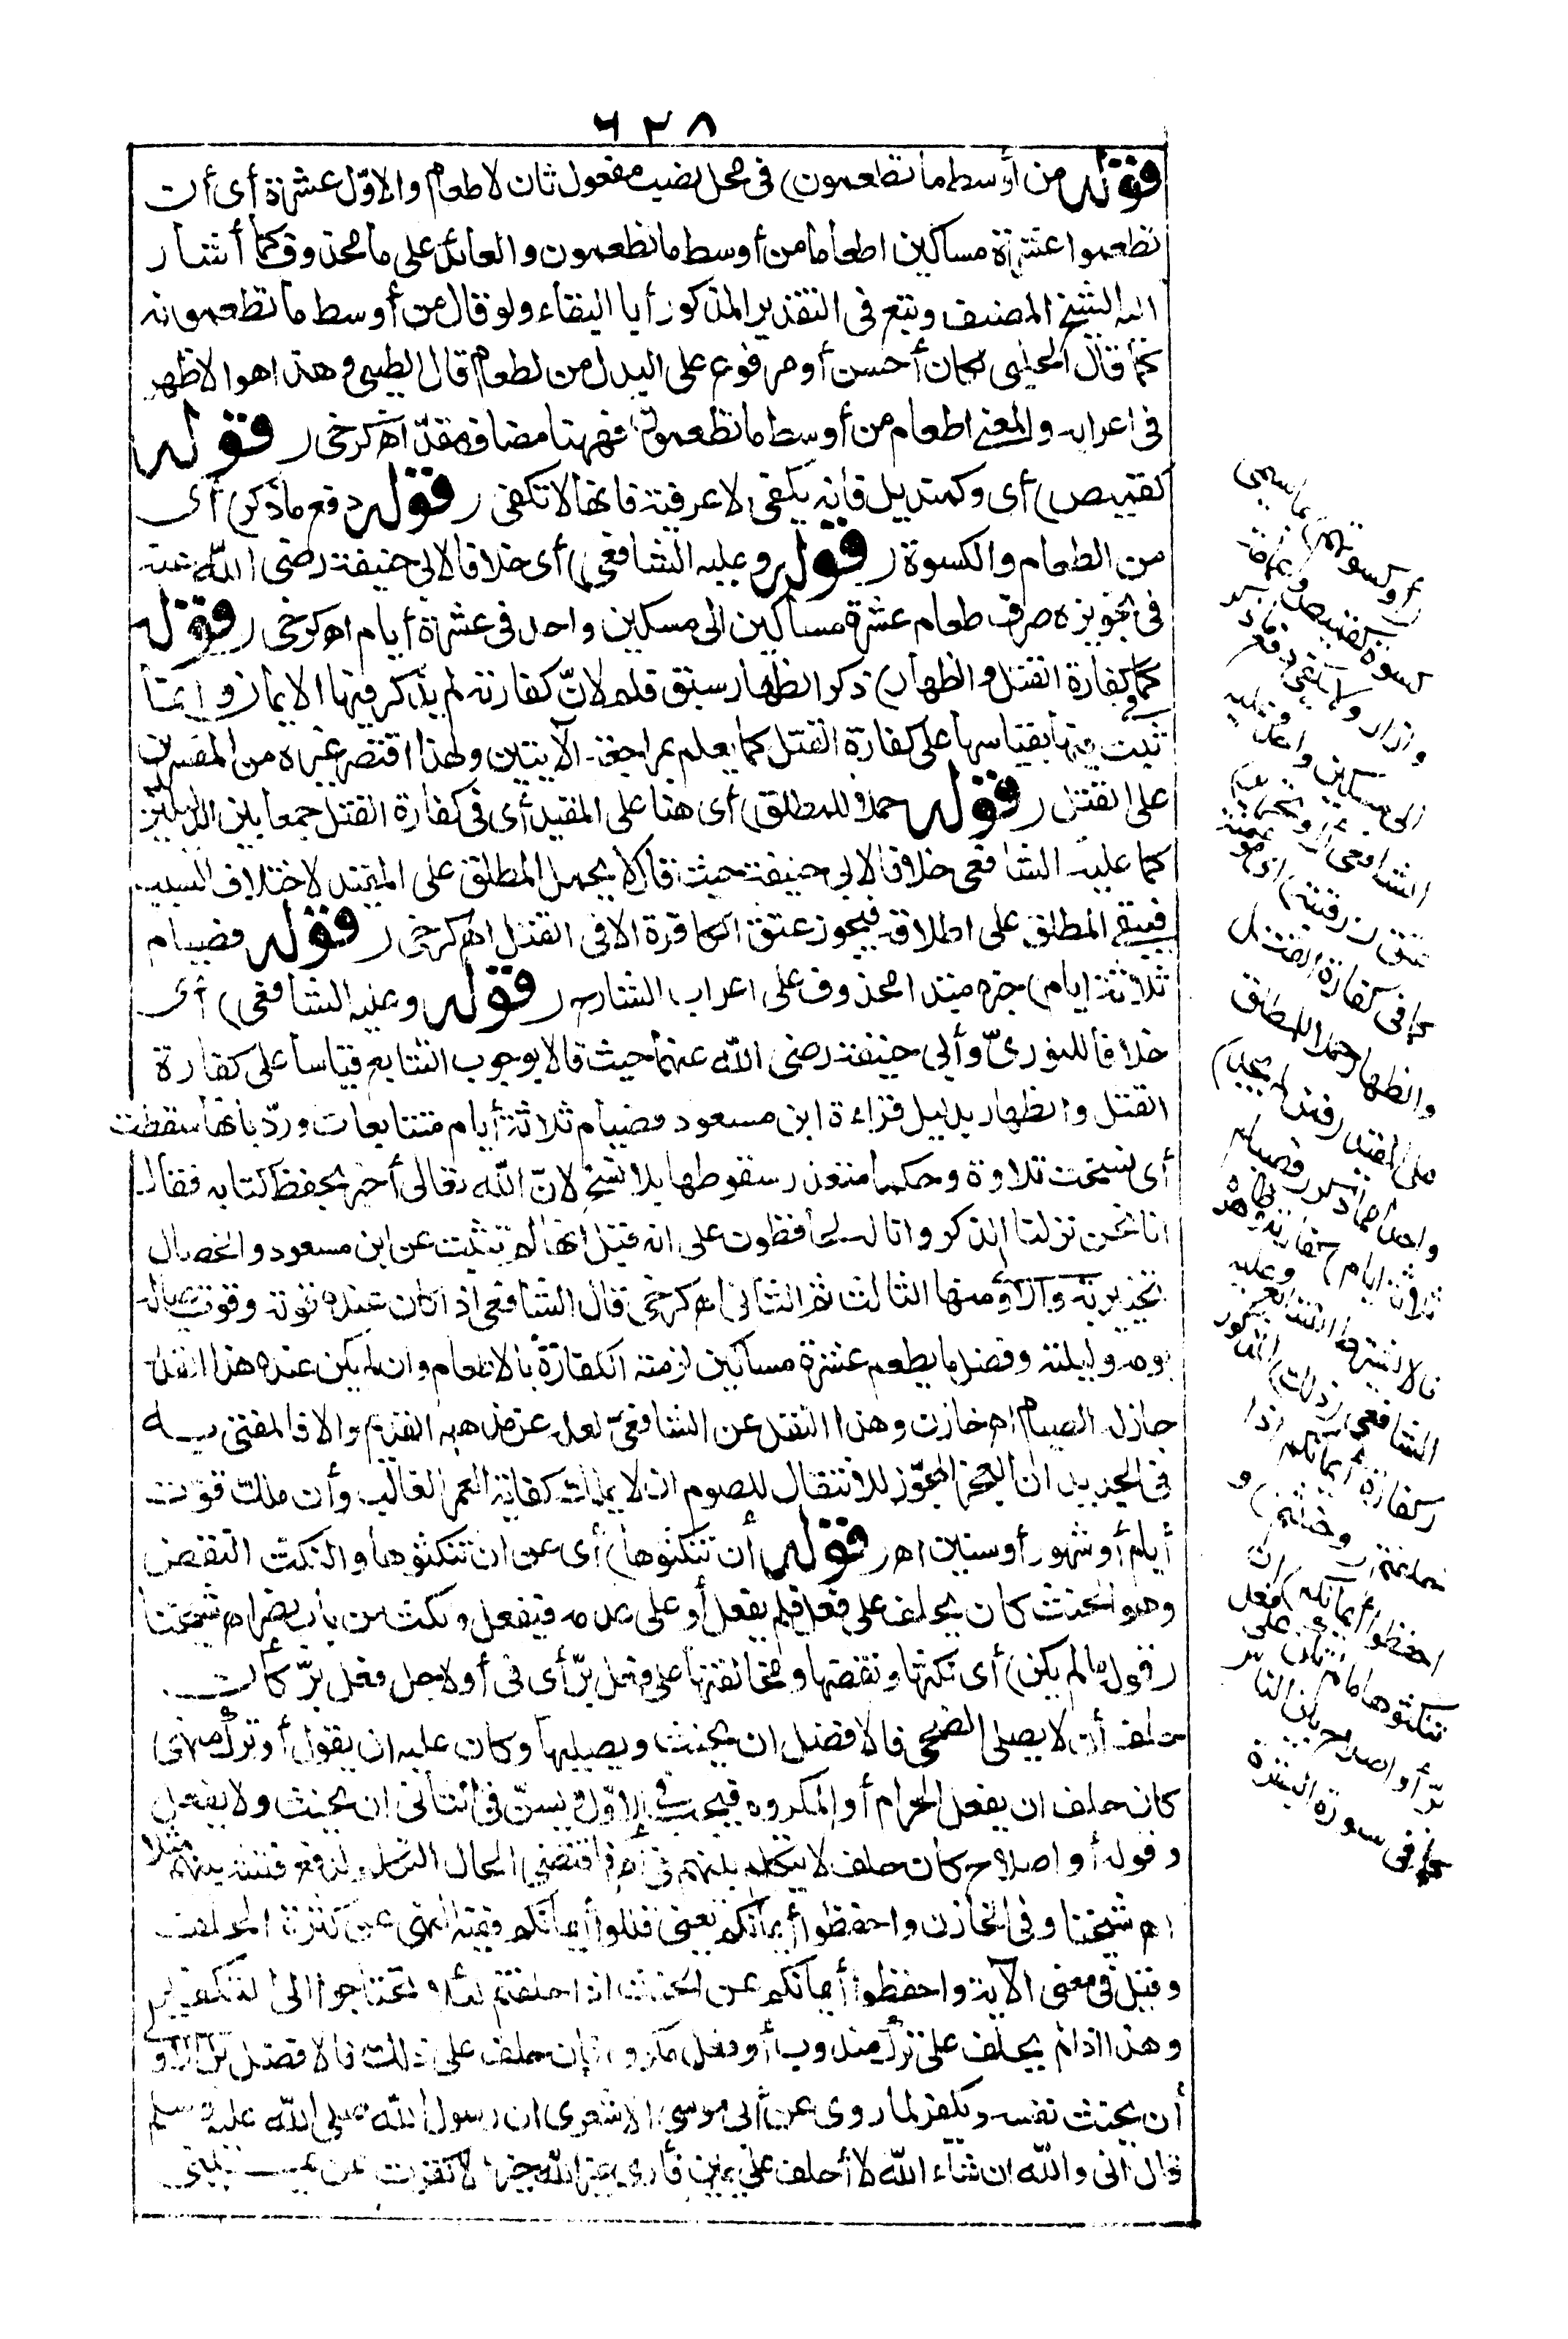 ٦٢٨
قوله من أوسط ما تطعمون) فى محل نصب مفعول ثان لاطعام والاوّل عشرة أى أن
تطعموا عشرة مساكين اطعاما من أوسط ما تطعمون والعائد على ما محذوف كما أشار
اليه الشيخ المصنف وتبع فى التقدير المذكور أبا البقاء ولو قال من أوسط ما تطعمونه
كما قال الحلبى لكان أحسن أو مرفوع على البدل من اطعام قال الطيبى وهذا هو الاظهر
فى اعرابه والمعنى اطعام من أوسط ما تطعمون فههنا مضاف مقدّر اهـ كرخى (قوله
كقميص) أى وكمنديل فانه يكفى لا عرقية فانها لا تكفى (قوله دفع ما ذكر) أى
من الطعام والكسوة (قوله وعليه الشافعى) أى خلافا لابى حنيفة رضى الله عنه
فى تجويزه صرف طعام عشرة مساكين الى مسكين واحد فى عشرة أيام اهـ كرخى (قوله
كما فى كفارة القتل والظهار) ذكر الظهار سبق قلم لانّ كفارته لم يذكر فيها الايمان وانما
ثبت فيها بقياسها على كفارة القتل كما يعلم بمراجعة الآيتين ولهذا اقتصر غيره من المفسرين
على القتل (قوله حملا للمطلق) أى هنا على المقيد أى فى كفارة القتل جمعا بين الدليلين
كما عليه الشافعى خلافا لابى حنيفة حيث قال لا يحمل المطلق على المقيد لاختلاف السبب
فيبقى المطلق على اطلاقه فيجوز عتق الكافرة الا فى القتل اهـ كرخى (قوله فصيام
ثلاثة ايام) خبر مبتدا محذوف على اعراب الشارح (قوله وعليه الشافعى) أى
خلافا للثورىّ وأبى حنيفة رضى الله عنهما حيث قالا بوجوب التتابع قياسا على كفارة
القتل والظهار بدليل قراءة ابن مسعود فصيام ثلاثة أيام متتابعات وردّ بانها سقطت
أى نسخت تلاوة وحكما متعذر سقوطها بلا نسخ لانّ الله تعالى أخبر بحفظ كتابه فقال
انا نحن نزلنا الذكر وانا له لحافظون على انه قيل انها لم تثبت عن ابن مسعود والخصال
تخييرية والاولى منها الثالث ثم الثانى اهـ كرخى قال الشافعى اذا كان عنده قوته وقوت عياله
يومه وليلته وفضل ما يطعم عشرة مساكين لزمته الكفارة بالاطعام وان لم يكن عنده هذا القدر
جاز له الصيام اهـ خازن وهذا النقل عن الشافعىّ لعله عن مذهبه القديم والا فالمفتى به
فى الجديد ان العجز المجوّز للانتقال للصوم ان لا يملك كفاية العمر الغالب وأن ملك قوت
أيام أو شهور أو سنين اهـ (قوله أن تنكثوها) أى عن ان تنكثوها والنكث النقض
وهو الحنث كان يحلف على فعل فلم يفعل أو على عدمه فيفعل ونكث من باب نصر اهـ شيخنا
(قوله ما لم يكن) أى نكثها ونقضها ومخالفتها على فعل برّ أى فى أو لاجل فعل برّ كأن
حلف أن لا يصلى الضحى فالافضل ان يحنث ويصليها وكان عليه ان يقول أو ترك منهى
كان حلف ان يفعل الحرام أو المكروه فيجب فى الاوّل ويسنّ فى الثانى ان يحنث ولا يفعل
وقوله أو اصلاح كأن حلف لا يتكلم بينهم فى أمر فاقتضى الحال التكلم لدفع فتنة بينهم مثلا
اهـ شيخنا وفى الخازن واحفظوا أيمانكم يعنى قللوا أيمانكم ففيه النهى عن كثرة الحلف
وقيل فى معنى الآية واحفظوا أيمانكم عن الحنث اذا حلفتم لئلا تحتاجوا الى التكفير
وهذا اذا لم يحلف على ترك مندوب أو فعل مكروه فان حلف على ذلك فالافضل
أن يحنث نفسه ويكفر لما روى عن أبى موسى الاشعرى ان رسول الله صلى الله عليه وسلم
قال انى والله ان شاء الله لا أحلف على يمين فأرى غيرها خيرا الا كفرت عن يمينى
(أو كسوتهم) بما يسمى
كسوة كقميص وعمامة
وازار ولا يكفى دفع ما ذكر
الى مسكين واحد وعليه
الشافعى (أو تحرير)
عتق (رقبة) أى مؤمنة
كما فى كفارة القتل
والظهار حملا للمطلق
على المقيد (فمن لم يجد)
واحدا مما ذكر (فصيام
ثلاثة ايام) كفارته وظاهره
انه لا يشترط التتابع وعليه
الشافعى (ذلك) المذكور
(كفارة أيمانكم اذا
حلفتم) وحنثتم (و
احفظوا أيمانكم) ان
تنكثوها ما لم تكن على فعل
برّ أو اصلاح بين الناس
كما فى سورة البقرة